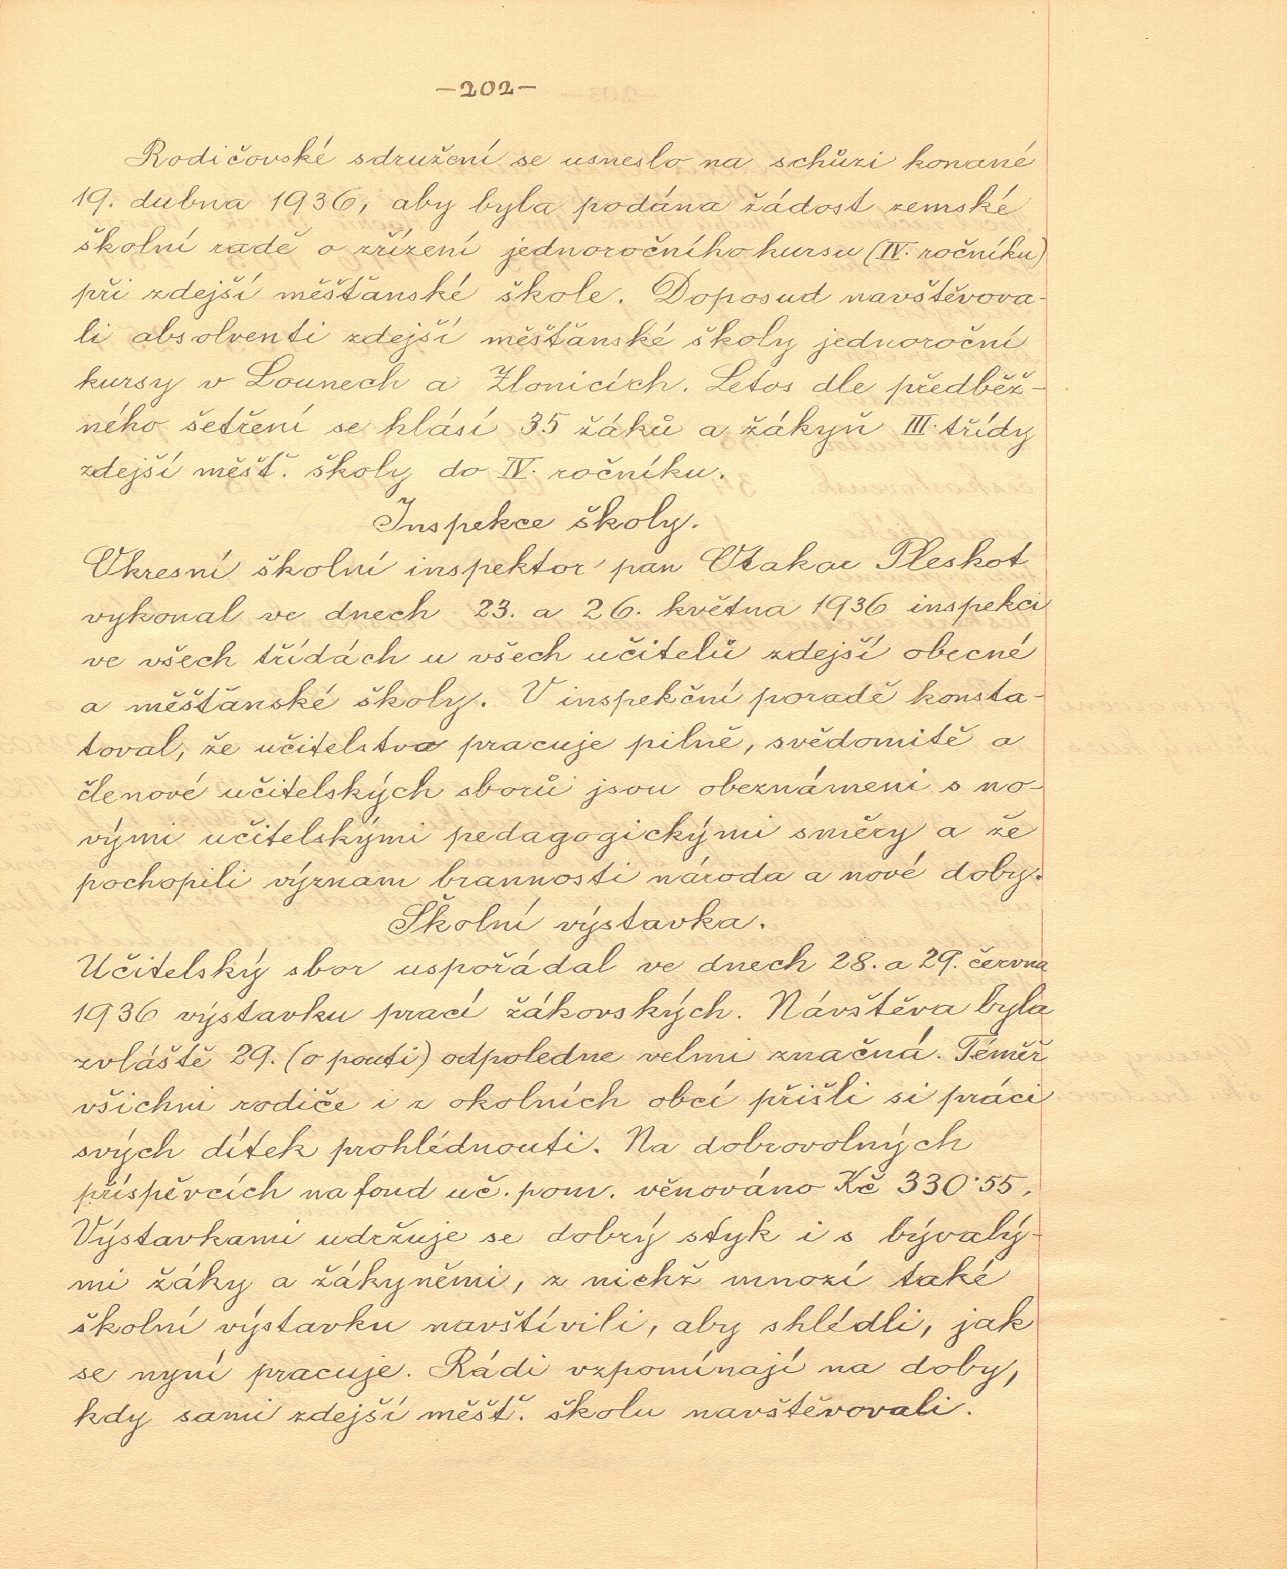 -202-
Rodičovské sdružení se usneslo na schůzi konané
19. dubna 1936, aby byla podána žádost zemské
školní radě o zřízení jednoročního kursu (IV. ročníku)
při zdejší měšťanské škole. Doposud navštěvova-
li absolventi zdejší měšťanské školy jednoroční
kursy v Lounech a Zlonicích. Letos dle předběž-
ného šetření se hlásí 35 žáků a žákyň III. třídy
zdejší měšť. školy do IV. ročníku.
Inspekce školy.
Okresní školní inspektor pan Otakar Pleskot
vykonal ve dnech 23. a 26. května 1936 inspekci
ve všech třídách u všech učitelů zdejší obecné
a měšťanské školy. V inspekční poradě konsta-
toval, že učitelstvo pracuje pilně, svědomitě a
členové učitelských sborů jsou obeznámeni s no-
vými učitelskými pedagogickými směry a že
pochopili význam brannosti národa a nové doby.
Školní výstavka.
Učitelský sbor uspořádal ve dnech 28. a 29. června
1936 výstavku prací žákovských. Návštěva byla
zvláště 29. (o pouti) odpoledne velmi značná. Téměř
všichni rodiče i z okolních obcí přišli si práci
svých dítek prohlédnouti. Na dobrovolných
příspěvcích na fond uč. pom. věnováno Kč 330·55.
Výstavkami udržuje se dobrý styk i s bývalý-
mi žáky a žákyněmi, z nichž mnozí také
školní výstavku navštívili, aby shlédli, jak
se nyní pracuje. Rádi vzpomínají na doby,
kdy sami zdejší měšť. školu navštěvovali.